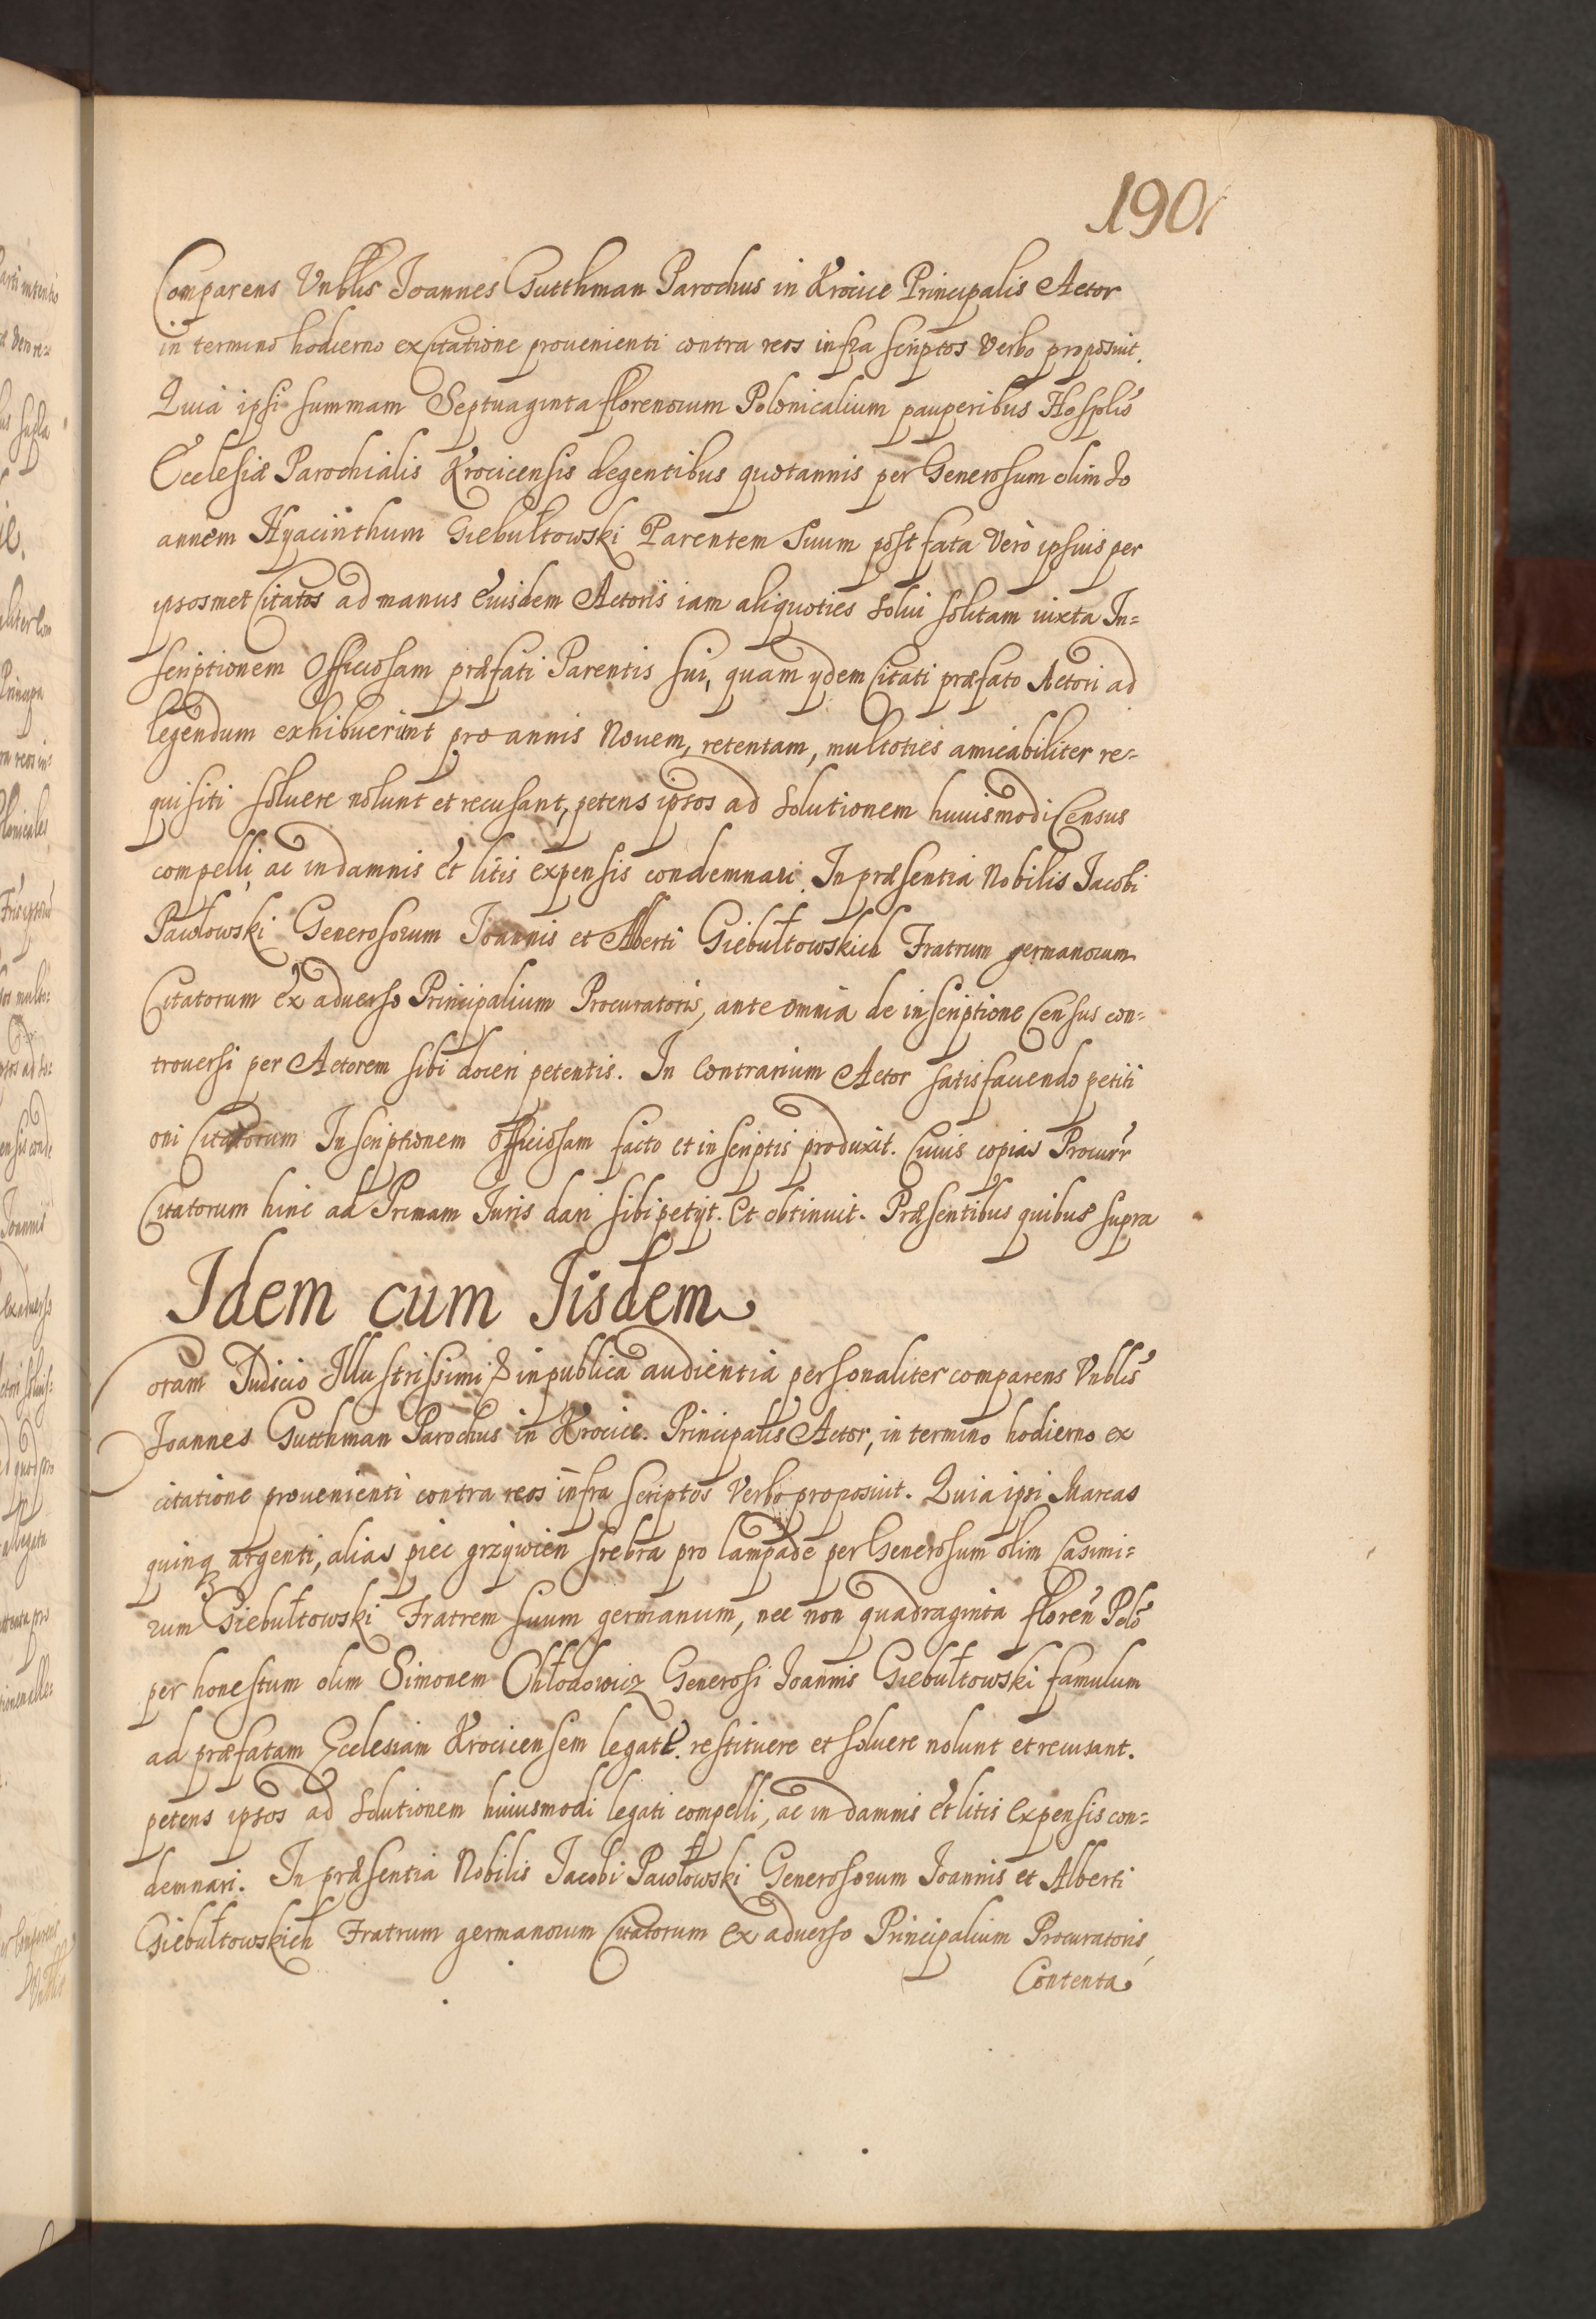 190
Comparens Vnblis Joannes Gutthman Parochus in Krocice Principalis Actor
in termino hodierno ex Citatione prouenienti contra reos infra scriptos Verbo proposuit.
Quia ipsi summam Septuaginta florenorum Polonicalium pauperibus Hosplis
Ecclesiæ Parochialis Krocicensis degentibus quotannis per Generosum olim Jo
annem Hyacinthum Giebułtowski Parentem Suum post fata Verò ipsius per
ipsosmet Citatos ad manus Euisdem Actoris iam aliquoties Solui solitam iuxta In=
scriptionem Officiosam præfati Parentis sui, quam ydem Citati præfato Actori ad
legendum exhibuerunt pro annis Nouem, retentam, multoties amicabiliter re=
quisiti soluere nolunt et recusant, petens ipsos ad Solutionem huuismodi Census
compelli, ac in damnis et litis expensis condemnari. In præsentia Nobilis Jacobi
Pawłowski Generosorum Joannis et Alberti Giebułtowskich Fratrum germanorum
Citatorum ex aduerso Principalium Procuratoris, ante omnia de inscriptione Census con=
trouersi per Actorem sibi doceri petentis. In Contrarium Actor satisfaciendo petiti
oni Citatorum Inscriptionem Officiosam facto et in scriptis produxit. Cuuis copias Procurr
Citatorum hinc ad Primam Juris dari sibi petyt. Et obtinuit. Præsentibus quibus supra
Idem cum Iisdem
Coram Judicio Illustrissimi & in publica audientia personaliter comparens Vnblis
Joannes Gutthman Parochus in Krocice. Principalis Actor, in termino hodierno ex
citatione prouenienti contra reos infra scriptos Verbo proposuit. Quia ipsi Marcas
quinq argenti, alias pięc grzywien srebra pro lampade per Generosum olim Casimi=
rum Giebułtowski Fratrem suum germanum, nec non quadraginta floren Polo
per honestum olim Simonem Chłodowicz Generosi Joannis Giebułtowski famulum
ad præfatam Ecclesiam Krocicensem legatę. restituere et soluere nolunt et recusant.
petens ipsos ad Solutionem huiusmodi legati compelli, ac in damnis et litis Expensis con=
demnari. In præsentia Nobilis Jacobi Pawłowski Generosorum Joannis et Alberti
Giebułtowskich Fratrum germanorum Citatorum ex aduerso Principalium Procuratoris,
Contenta